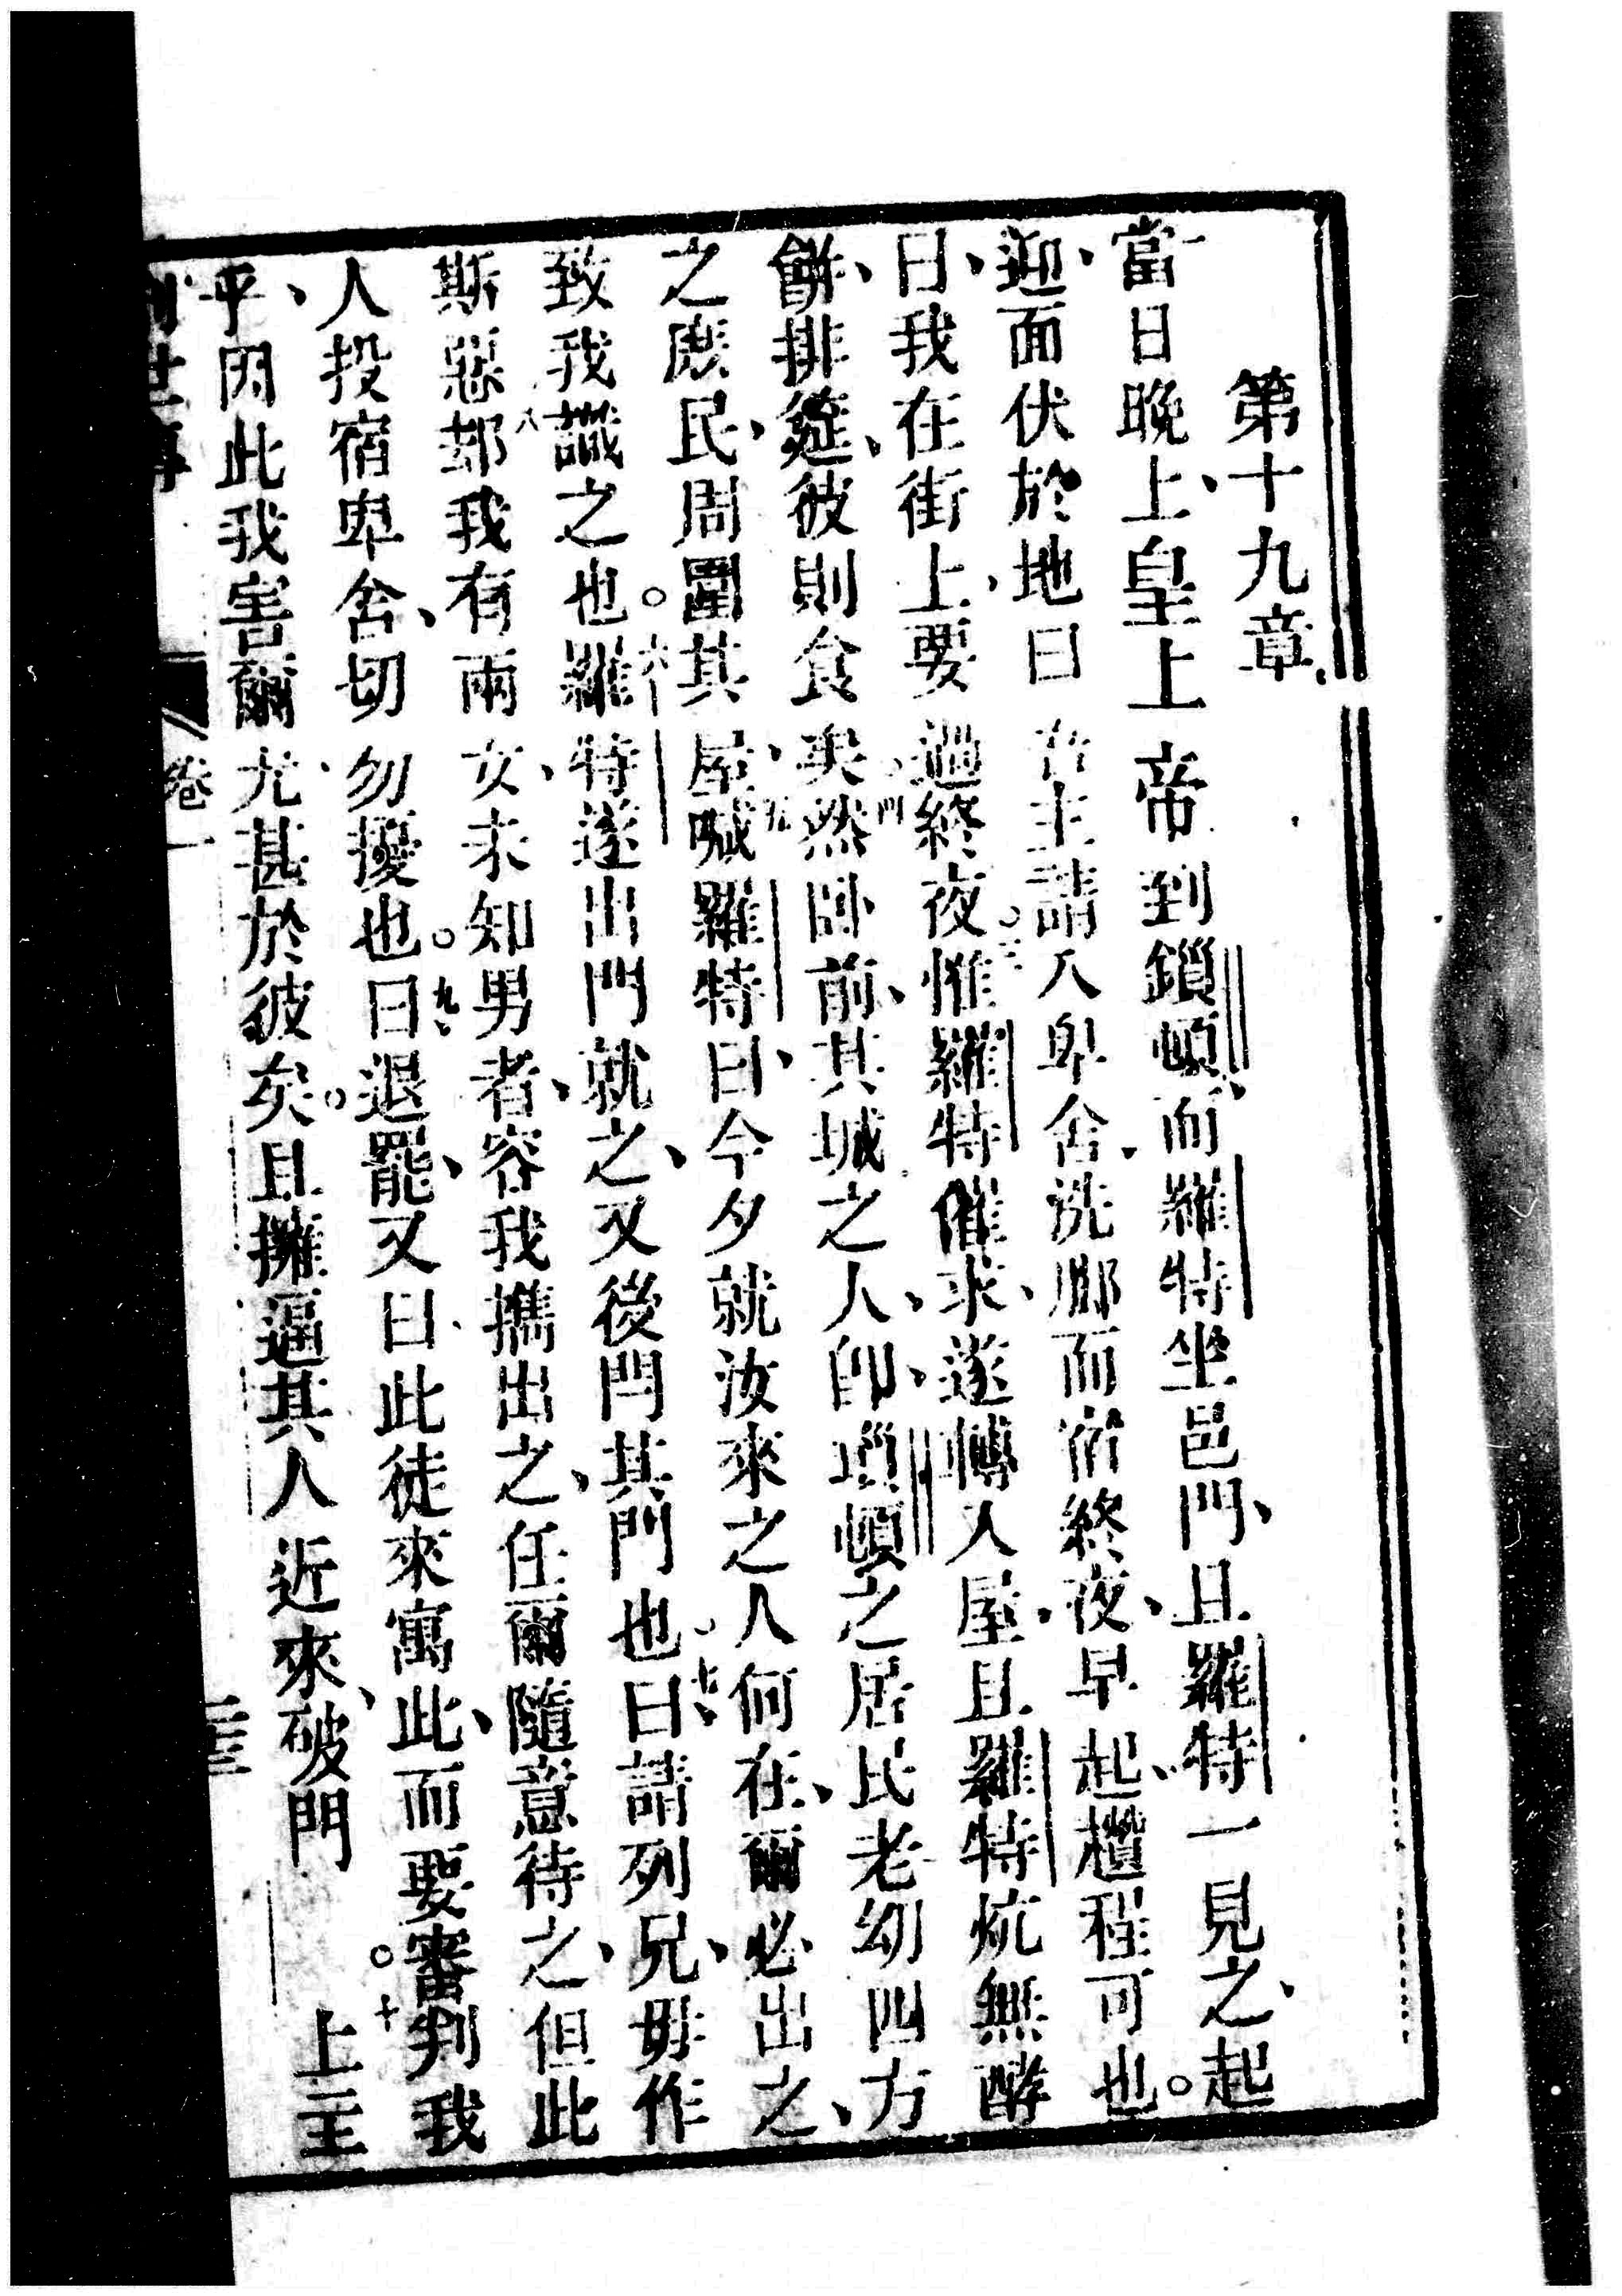 第十九章
一當日晚上、皇上帝到鎖頓、而羅特坐邑門、且羅特一見之、起
迎、面伏於地曰、二吾主請入卑舍、洗腳而宿終夜、早起、趲程可也。
曰、我在街上、要過終夜。三惟羅特催求、遂轉入屋、且羅特炕無酵
餅、排筵、彼則食矣。四然臥前、其城之人、即瑣頓之居民老幼四方
之庶民、周圍其屋、五喊羅特曰、今夕就汝來之人何在、爾必出之、
致我識之也。六羅特遂出門就之、又後閂其門也。七曰、請列兄、毋作
斯惡、八却我有兩女、未知男者、容我攜出之、任爾隨意待之、但此
人投宿卑舍、切勿擾也。九曰、退罷、又曰、此徒來寓此、而要審判我
乎、因此我害爾、尤甚於彼矣。且擁逼其人、近來破門。十上主
創世傳
卷一